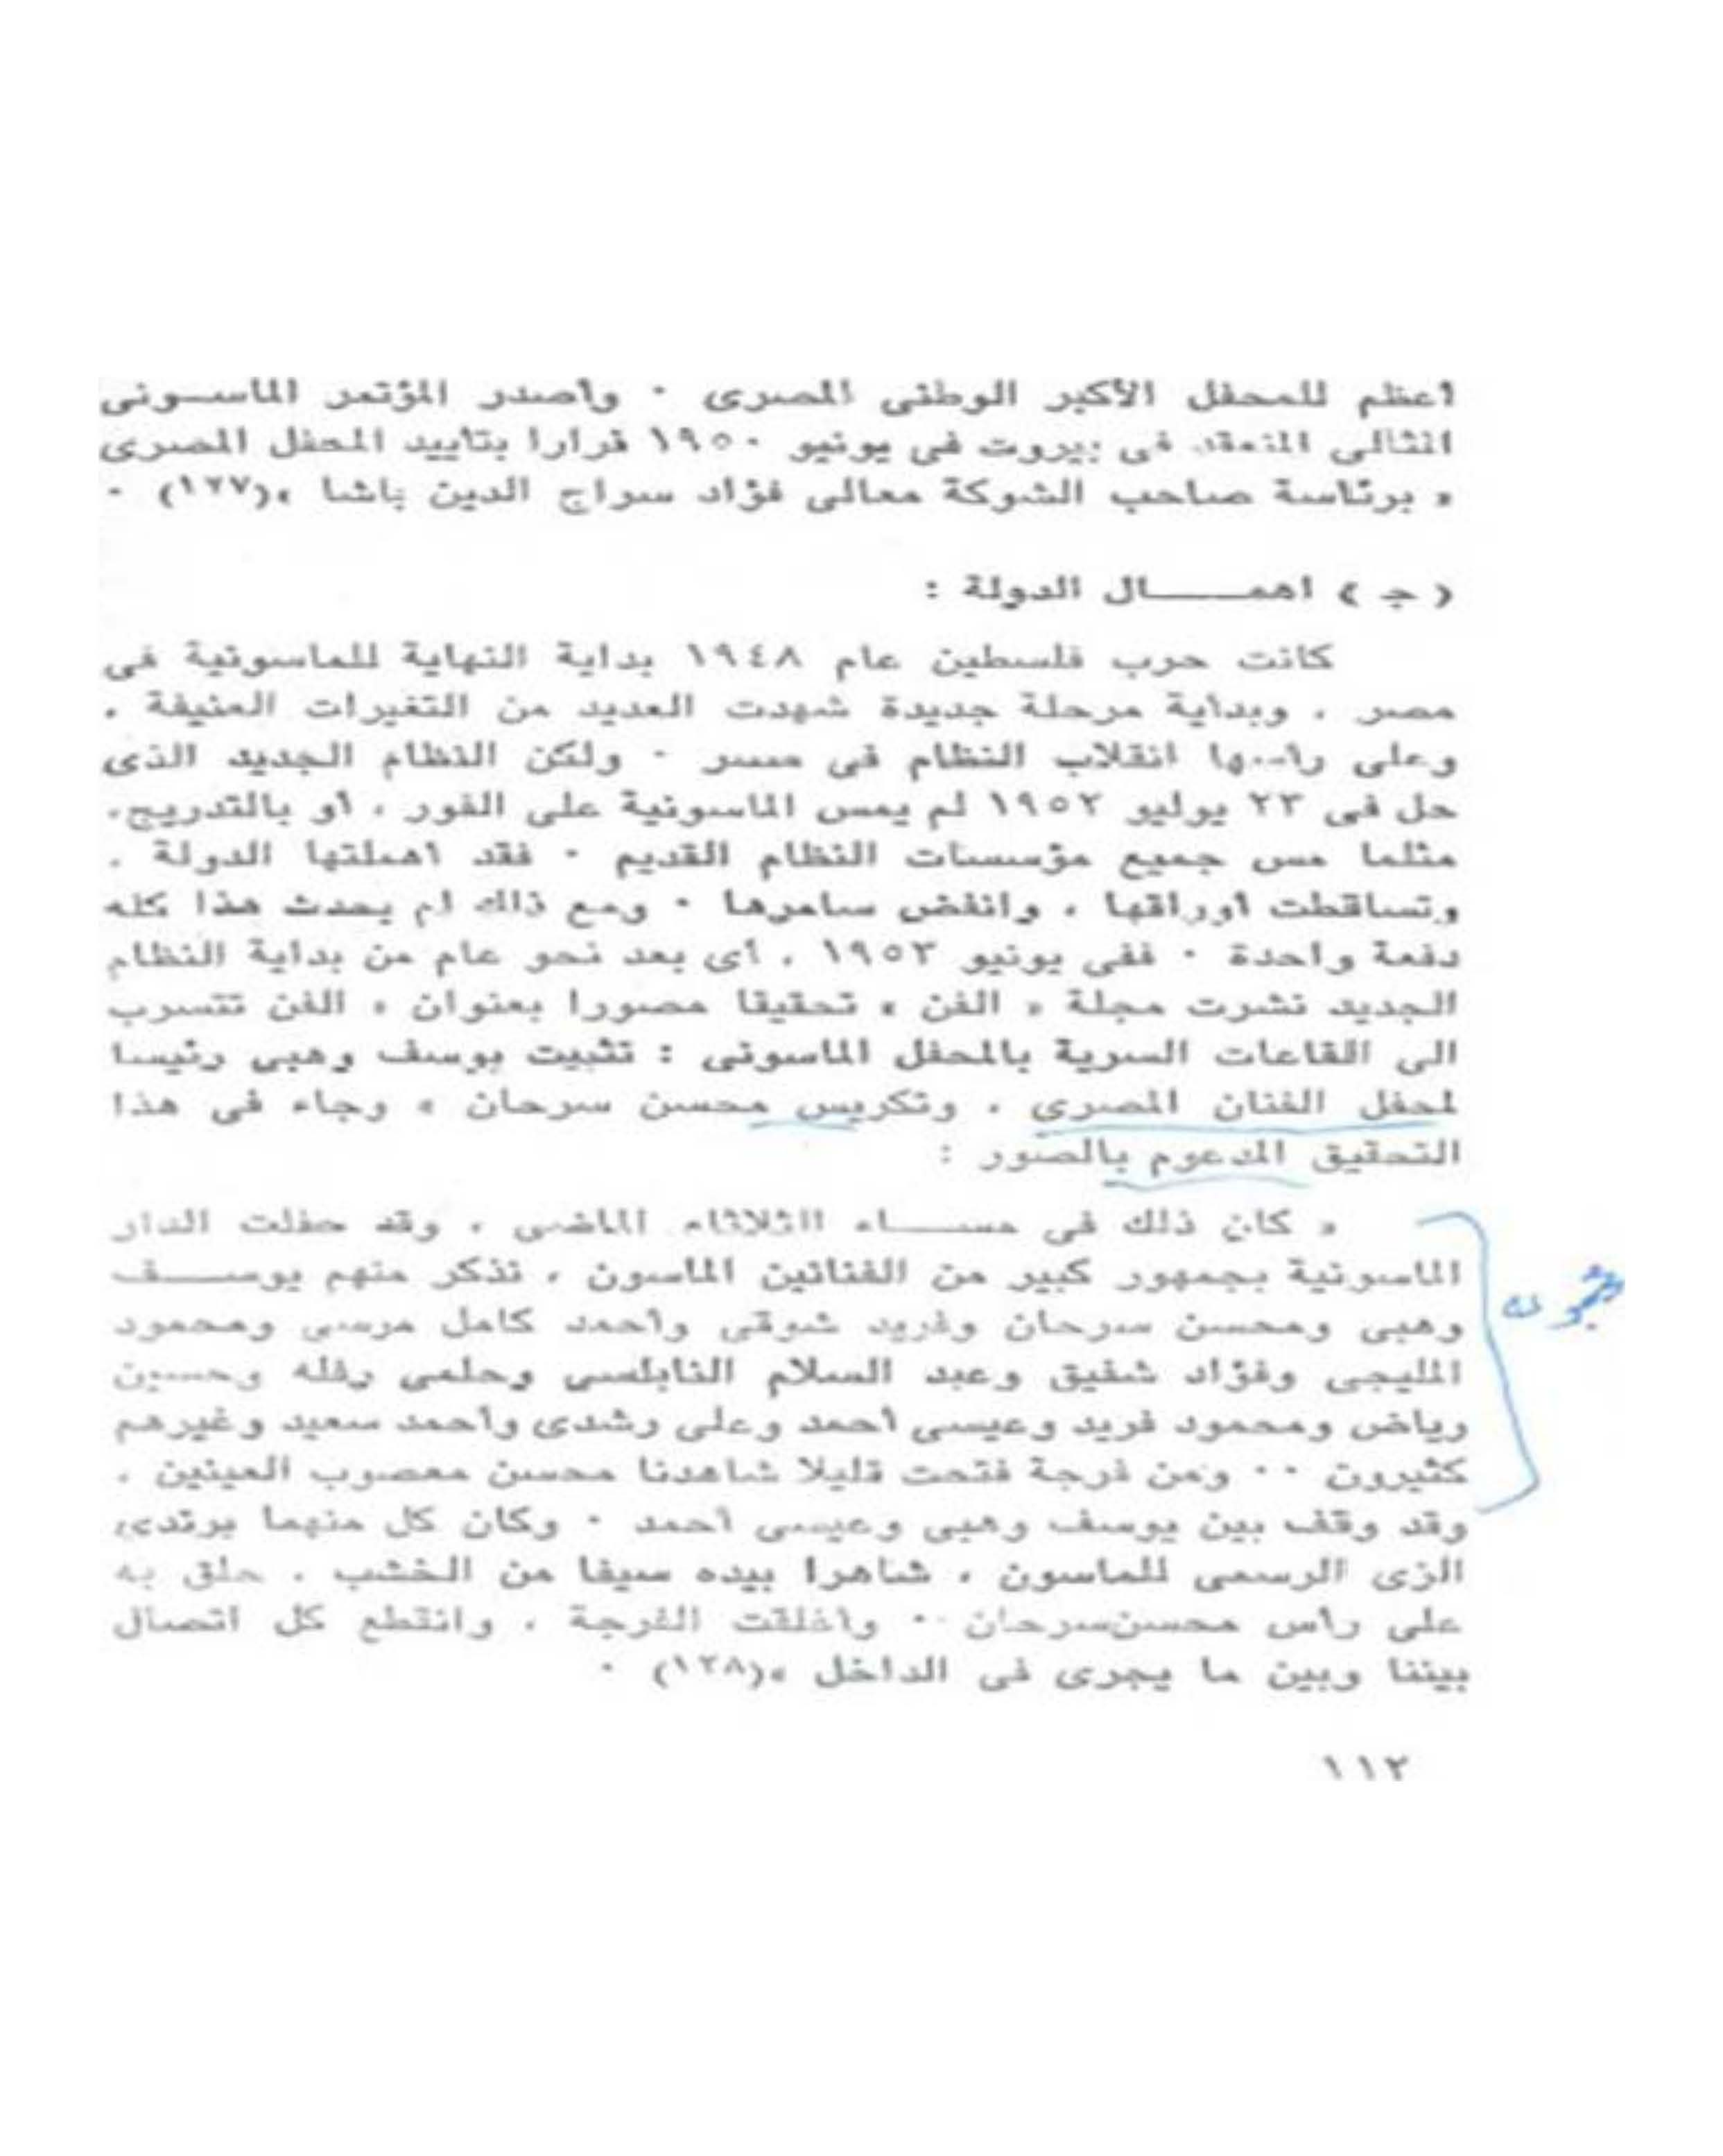 أعظم للمحفل الأكبر الوطنى المصرى ٠ وأصدر المؤتمر الماســونى
الثالى المنعقد فى بيروت فى يونيو ١٩٥٠ قرارا بتأييد المحفل المصرى
« برئاسة صاحب الشوكة معالى فؤاد سراج الدين باشا »(١٢٧) ٠
( جـ ) اهمــــــال الدولة :
كانت حرب فلسطين عام ١٩٤٨ بداية النهاية للماسونية فى
مصر ، وبداية مرحلة جديدة شهدت العديد من التغيرات العنيفة ،
وعلى رأسها انقلاب النظام فى مصر ٠ ولكن النظام الجديد الذى
حل فى ٢٣ يوليو ١٩٥٢ لم يمس الماسونية على الفور ، أو بالتدريج،
مثلما مس جميع مؤسسات النظام القديم ٠ فقد أهملتها الدولة ،
وتساقطت أوراقها ، وانفض سامرها ٠ ومع ذلك لم يحدث هذا كله
دفعة واحدة ٠ ففى يونيو ١٩٥٣ ، أى بعد نحو عام من بداية النظام
الجديد نشرت مجلة « الفن » تحقيقا مصورا بعنوان « الفن تتسرب
الى القاعات السرية بالمحفل الماسونى : تثبيت يوسف وهبى رئيسا
لمحفل الفنان المصرى ، وتكريس محسن سرحان » وجاء فى هذا
التحقيق المدعوم بالصور :
« كان ذلك فى مســــاء الثلاثاء الماضى ، وقد حفلت الدار
الماسونية بجمهور كبير من الفنانين الماسون ، نذكر منهم يوســـف
وهبى ومحسن سرحان وفريد شوقى وأحمد كامل مرسى ومحمود
المليجى وفؤاد شفيق وعبد السلام النابلسى وحلمى رفله وحسين
رياض ومحمود فريد وعيسى أحمد وعلى رشدى وأحمد سعيد وغيرهم
كثيرون ٠٠ ومن فرجة فتحت قليلا شاهدنا محسن معصوب العينين ،
وقد وقف بين يوسف وهبى وعيسى أحمد ٠ وكان كل منهما يرتدى
الزى الرسمى للماسون ، شاهرا بيده سيفا من الخشب ، حلق به
على رأس محسن سرحان ٠٠ وأغلقت الفرجة ، وانقطع كل اتصال
بيننا وبين ما يجرى فى الداخل »(١٢٨) ٠
١١٢